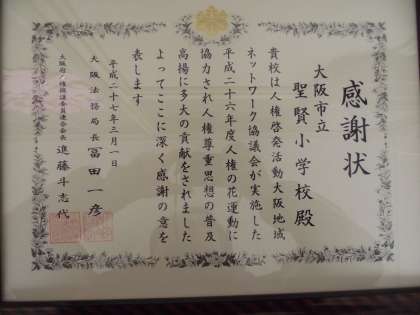 感謝状
大阪市立
聖賢小学校殿
貴校は人権啓発活動大阪地域
ネットワーク協議会が実施した
平成二十六年度人権の花運動に
協力され人権尊重思想の普及
高揚に多大の貢献をされました
よってここに深く感謝の意を
表します
平成二十七年三月一日
大阪法務局長 冨田一彦
大阪府人権擁護委員連合会会長 進藤斗志代